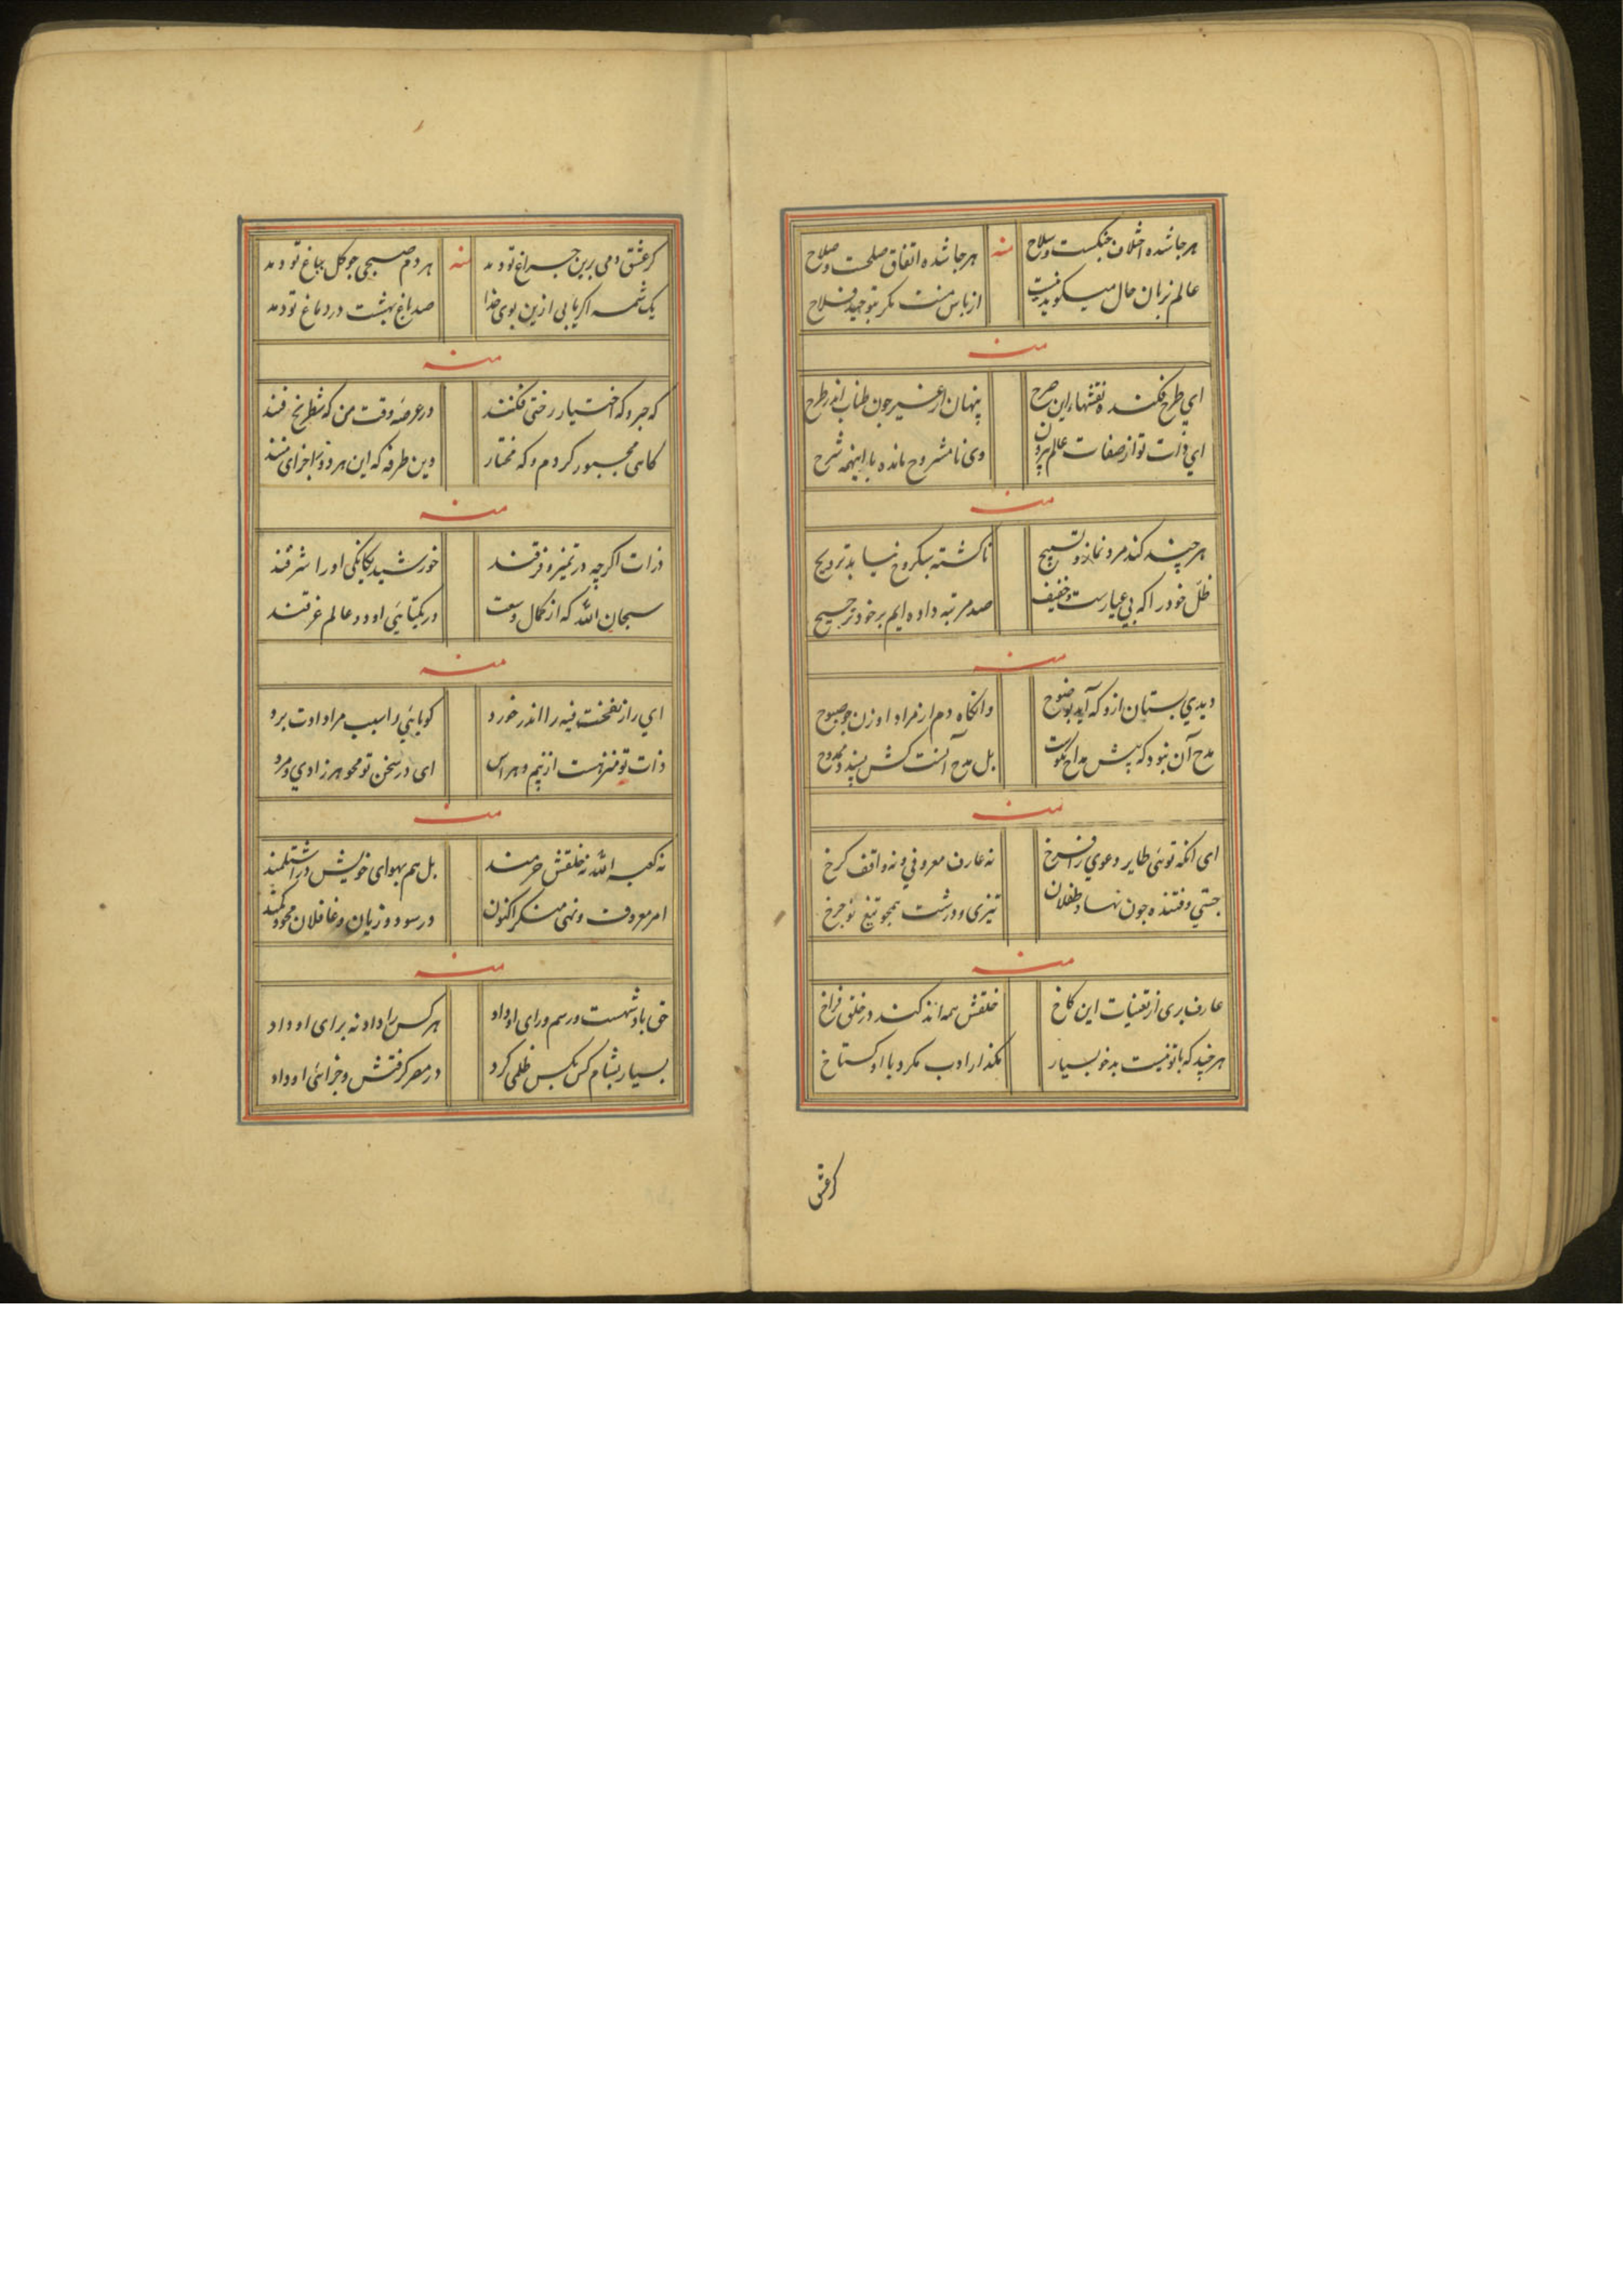 هرجا شده اختلاف جنگست و سلاح
منه
هرجا شده اتفاق صلحست و صلاح
عالم بزبان حال میکوید نیست
از باس منت مکر بتوحید فلاح
منه
ای طرح فکنده نقشهاء این صرح
پنهان از غیر چون طناب اندر طرح
ای ذات تو از صفات عالم بیرون
وی نامشروح مانده با اینهمه شرح
منه
هر چند کند مرد نماز و تسبیح
ناکشته سبکروح نیابد ترویح
ظل خود را که بی عیارست و خفیف
صد مرتبه داده ایم بر خود ترجیح
منه
دیدي بستان ازو که آید بوضوح
وانکاه دم از مراد او زن چو صبوح
مدح آن نبود که پیش مداح نکوست
بل مدح آنست کش پسندد ممدوح
منه
ای انکه توئی طایر دعوي را فرخ
نه عارف معروفي و نه واقف کرخ
جستي و فتنده چون نهاد طفلان
تیزی و درشت همچو تیغ نو چرخ
منه
عارف بری از تعینات این کاخ
خلقش همه اندکند در خلق فراخ
هر چند که با تو نیست بدخو بسیار
مکذار ادب مکرد با او کستاخ
کر عشق
کر عشق دمی برین چراغ تو دمد
منه
هر دم صبحی چو کل بباغ تو دمد
یک شمه اکر یابی ازین بوی خدا
صد باغ بهشت در دماغ تو دمد
منه
که جبر و که اختیار رختی فکنند
در عرصه وقت من که شطرنج فنند
کاهی مجبور کردم و که مختار
وین طرفه که این هر دو ز اجزای منند
منه
ذرات اکرچه در تمیز و فرقند
خورشید یکانکی او را شرقند
سبحان الله که از کمال وسعت
در یکتائی او دو عالم غرقند
منه
ای راز نفخت فیه را اندر خورد
کویائي را سبب مراد ادت برد
ذات تو منزهست از بیم و هراس
ای در سخن تو محو هر زادي و مرد
منه
نه کعبه الله نه خلقش حرمند
بل هم بهوای خویش در اشتلمند
امر معروف و نهی منکر اکنون
در سود و زیان و غافلان محو
منه
حق بادشهست و رسم و رای او داد
هر کس را داد نه برای او داد
بسیار بشام کس بکس ظلمی کرد
در مصر کرفتش و جزائی او داد